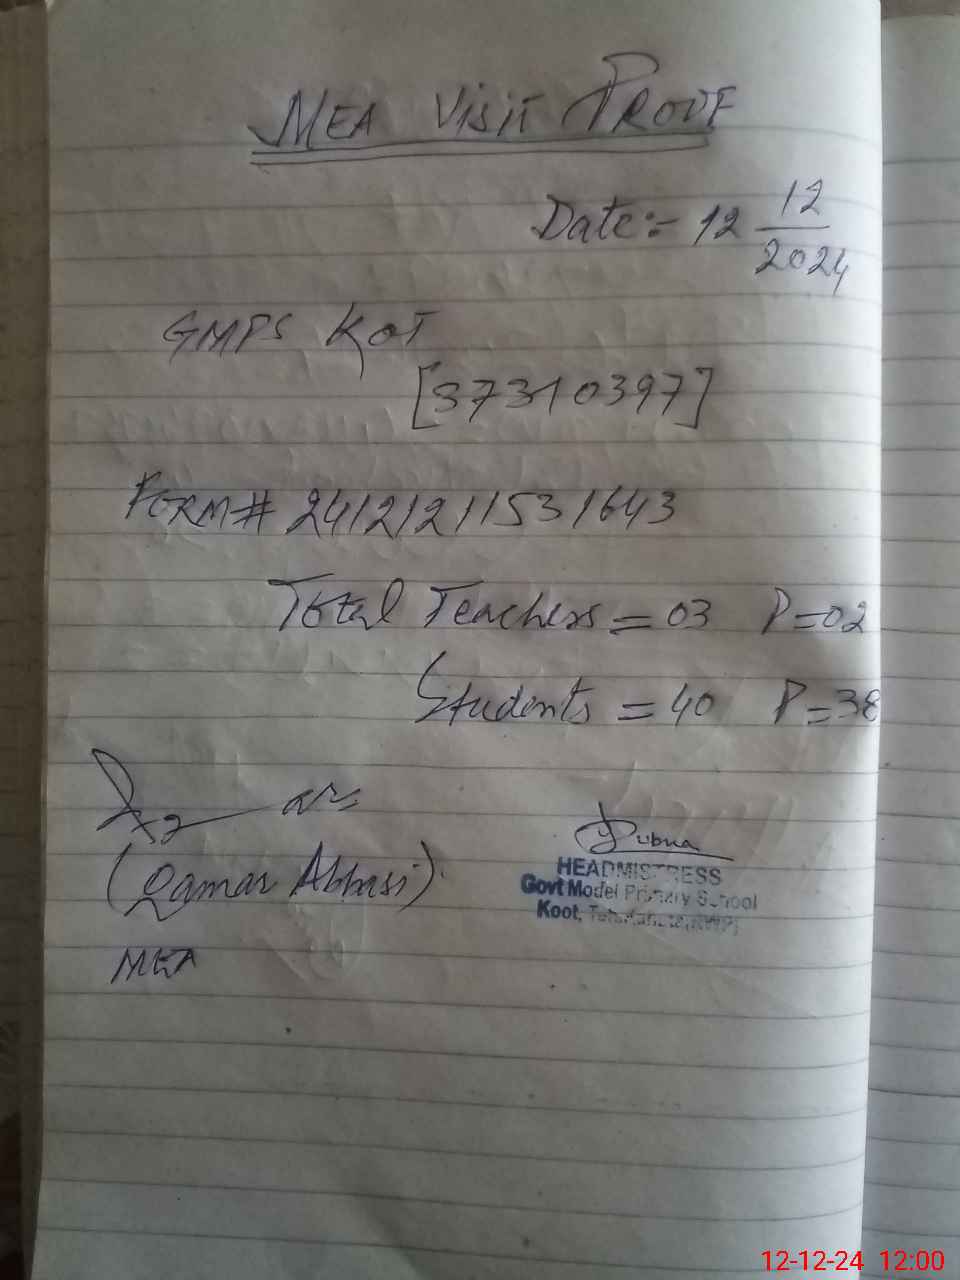 MEA Visit PROOF
Date:- 12 12/2024
GMPS KOT
[37310397]
FORM# 24121211531643
Total Teachers = 03 P=02
Students = 40 P=38
(Qamar Abbasi)
MEA
HEADMISTRESS
Govt Model Primary School
Koot,
12-12-24 12:00